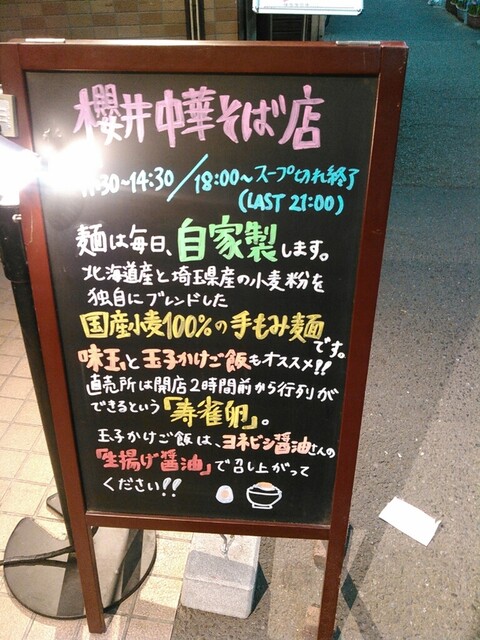 櫻井中華そば店
:30~14:30/18:00~スープ切れ終了
(LAST 21:00)
麺は毎日、自家製します。
北海道産と埼玉県産の小麦粉を
独自にブレンドした
国産小麦100%の手もみ麺です。
味玉と玉子かけご飯もオススメ!!
直売所は開店2時間前から行列が
できるという「寿雀卵」。
玉子かけご飯は、ヨネビシ醤油さんの
「生揚げ醤油」で召し上がって
ください!!